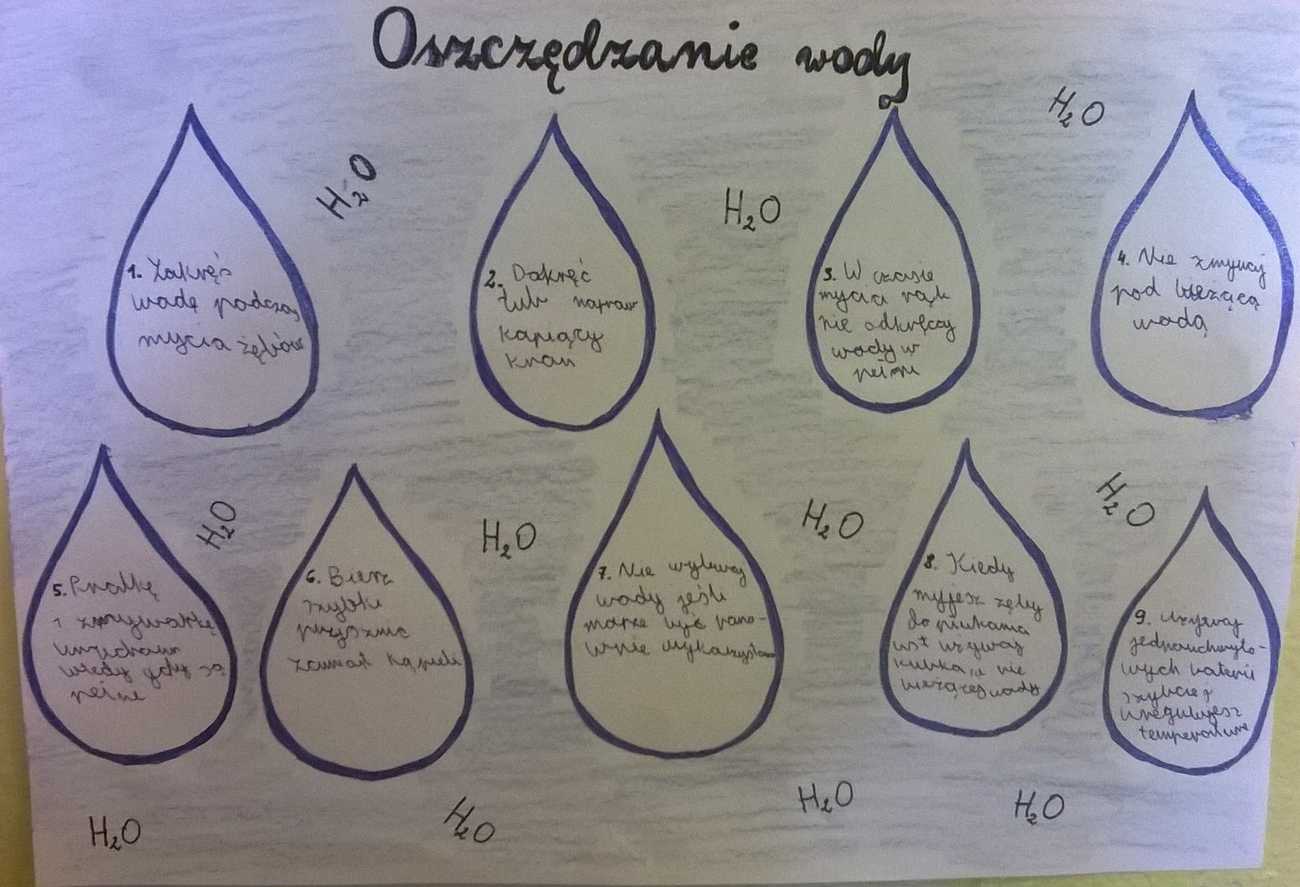 Oszczędzanie wody
H₂O
H₂O
H₂O
1. Zakręć
wodę podczas
mycia zębów
2. Dokręć
lub napraw
kapiący
kran
3. W czasie
mycia rąk
nie odkręcaj
wody w
pełni
4. Nie zmywaj
pod bieżącą
wodą
5. Pralkę
i zmywarkę
uruchamiaj
wtedy gdy są
pełne
H₂O
6. Bierz
szybki
prysznic
zamiast kąpieli
H₂O
7. Nie wylewaj
wody jeśli
może być pono-
wnie wykorzystana
H₂O
8. Kiedy
myjesz zęby
do płukania
ust używaj
kubka, a nie
bieżącej wody
H₂O
9. Używaj
jednouchwyto-
wych baterii
szybciej
uregulujesz
temperaturę
H₂O
H₂O
H₂O
H₂O